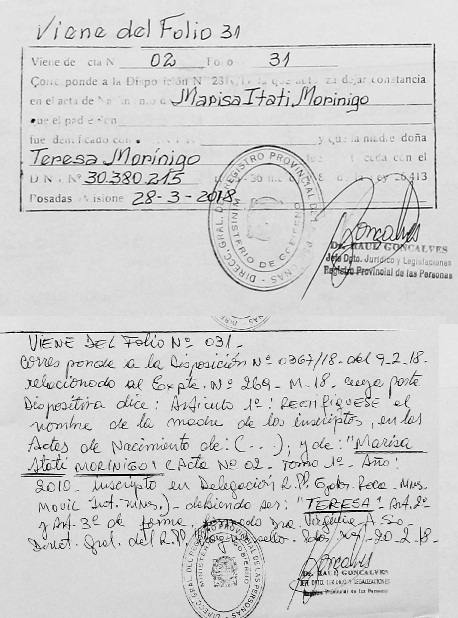 Viene del Folio 31
Viene de cta N 02 Fo o 31
Co responde a la Dispo ición N 23 la que auto za dejar constancia
en el acta de Na de Marisa Itati, Morinigo
que el pad e
fue dentificado con y que la madre doña
Teresa Morínigo ced con el
D N Nº 30.380.215 ey 26 413
Posadas isione 28-3-2018
DIRECC. GRAL. DEL REGISTRO PROVINCIAL DE LAS PERSONAS
MINISTERIO DE GOBIERNO
Goncalves
Dr. RAUL GONCALVES
Jefe Dpto. Jurídico y Legislaciones
Registro Provincial de las Personas
VIENE DEL FOLIO Nº 031-
Corresponde a la Disposición Nº 0367/18- del 9-2-18-
relacionado al Expte. Nº 269- M-18- cuya parte
Dispositiva dice: Artículo 1º: RECTIFIQUESE el
nombre de la madre de los inscriptos, en las
Actas de Nacimiento de: (...); y de: "Marisa
Itati MORINIGO" (Acta Nº 02- Tomo 1º- Año:
2010- inscripto en Delegación R.P.
Movil ) debiendo ser: "TERESA" Art. 2º
y Art. 3º de forma, Dra. Virginia A.
Direct. Gral. del R.P. 20-2-18-
Goncalves
Dr. RAUL GONCALVES
JEFE DPTO. JURIDICO Y LEGALIZACIONES
Registro Provincial de las Personas